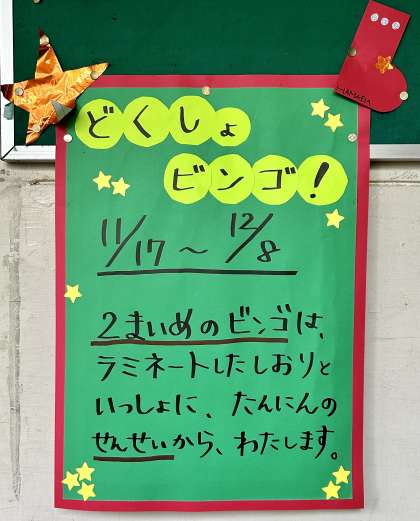 どくしょ
ビンゴ!
11/17～12/8
2まいめのビンゴは、
ラミネートしたしおりと
いっしょに、たんにんの
せんせいから、わたします。